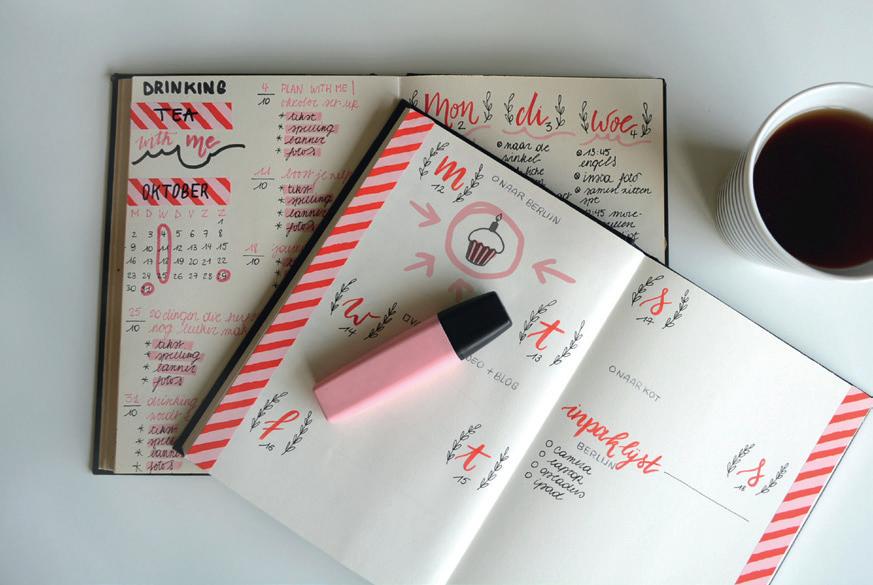 DRINKING
TEA
with me
OKTOBER
M D W D V Z Z
1
2 3 4 5 6 7 8
9 10 11 12 13 14 15
16 17 18 19 20 21 22
23 24 25 26 27 28 29
30 31
25
10
20 dingen die
nog leuker
* tekst
* spelling
* banner
* foto's
31
10
drinking
* tekst
* foto's
4
10
PLAN WITH ME |
oktober set-up
* tekst
* spelling
* banner
* foto's
11
10
boost je
* tekst
* spelling
* banner
* foto's
18
10
Mon
2
di
3
woe
4
naar de
winkel
13:45
engels
insta foto
samen zitten
m
12
O NAAR BERLIJN
w
14
t
13
DEO + BLOG
f
16
t
15
s
17
O NAAR KOT
inpaklijst
BERLIJN
O camera
O laptop
O opladers
O ipad
s
18